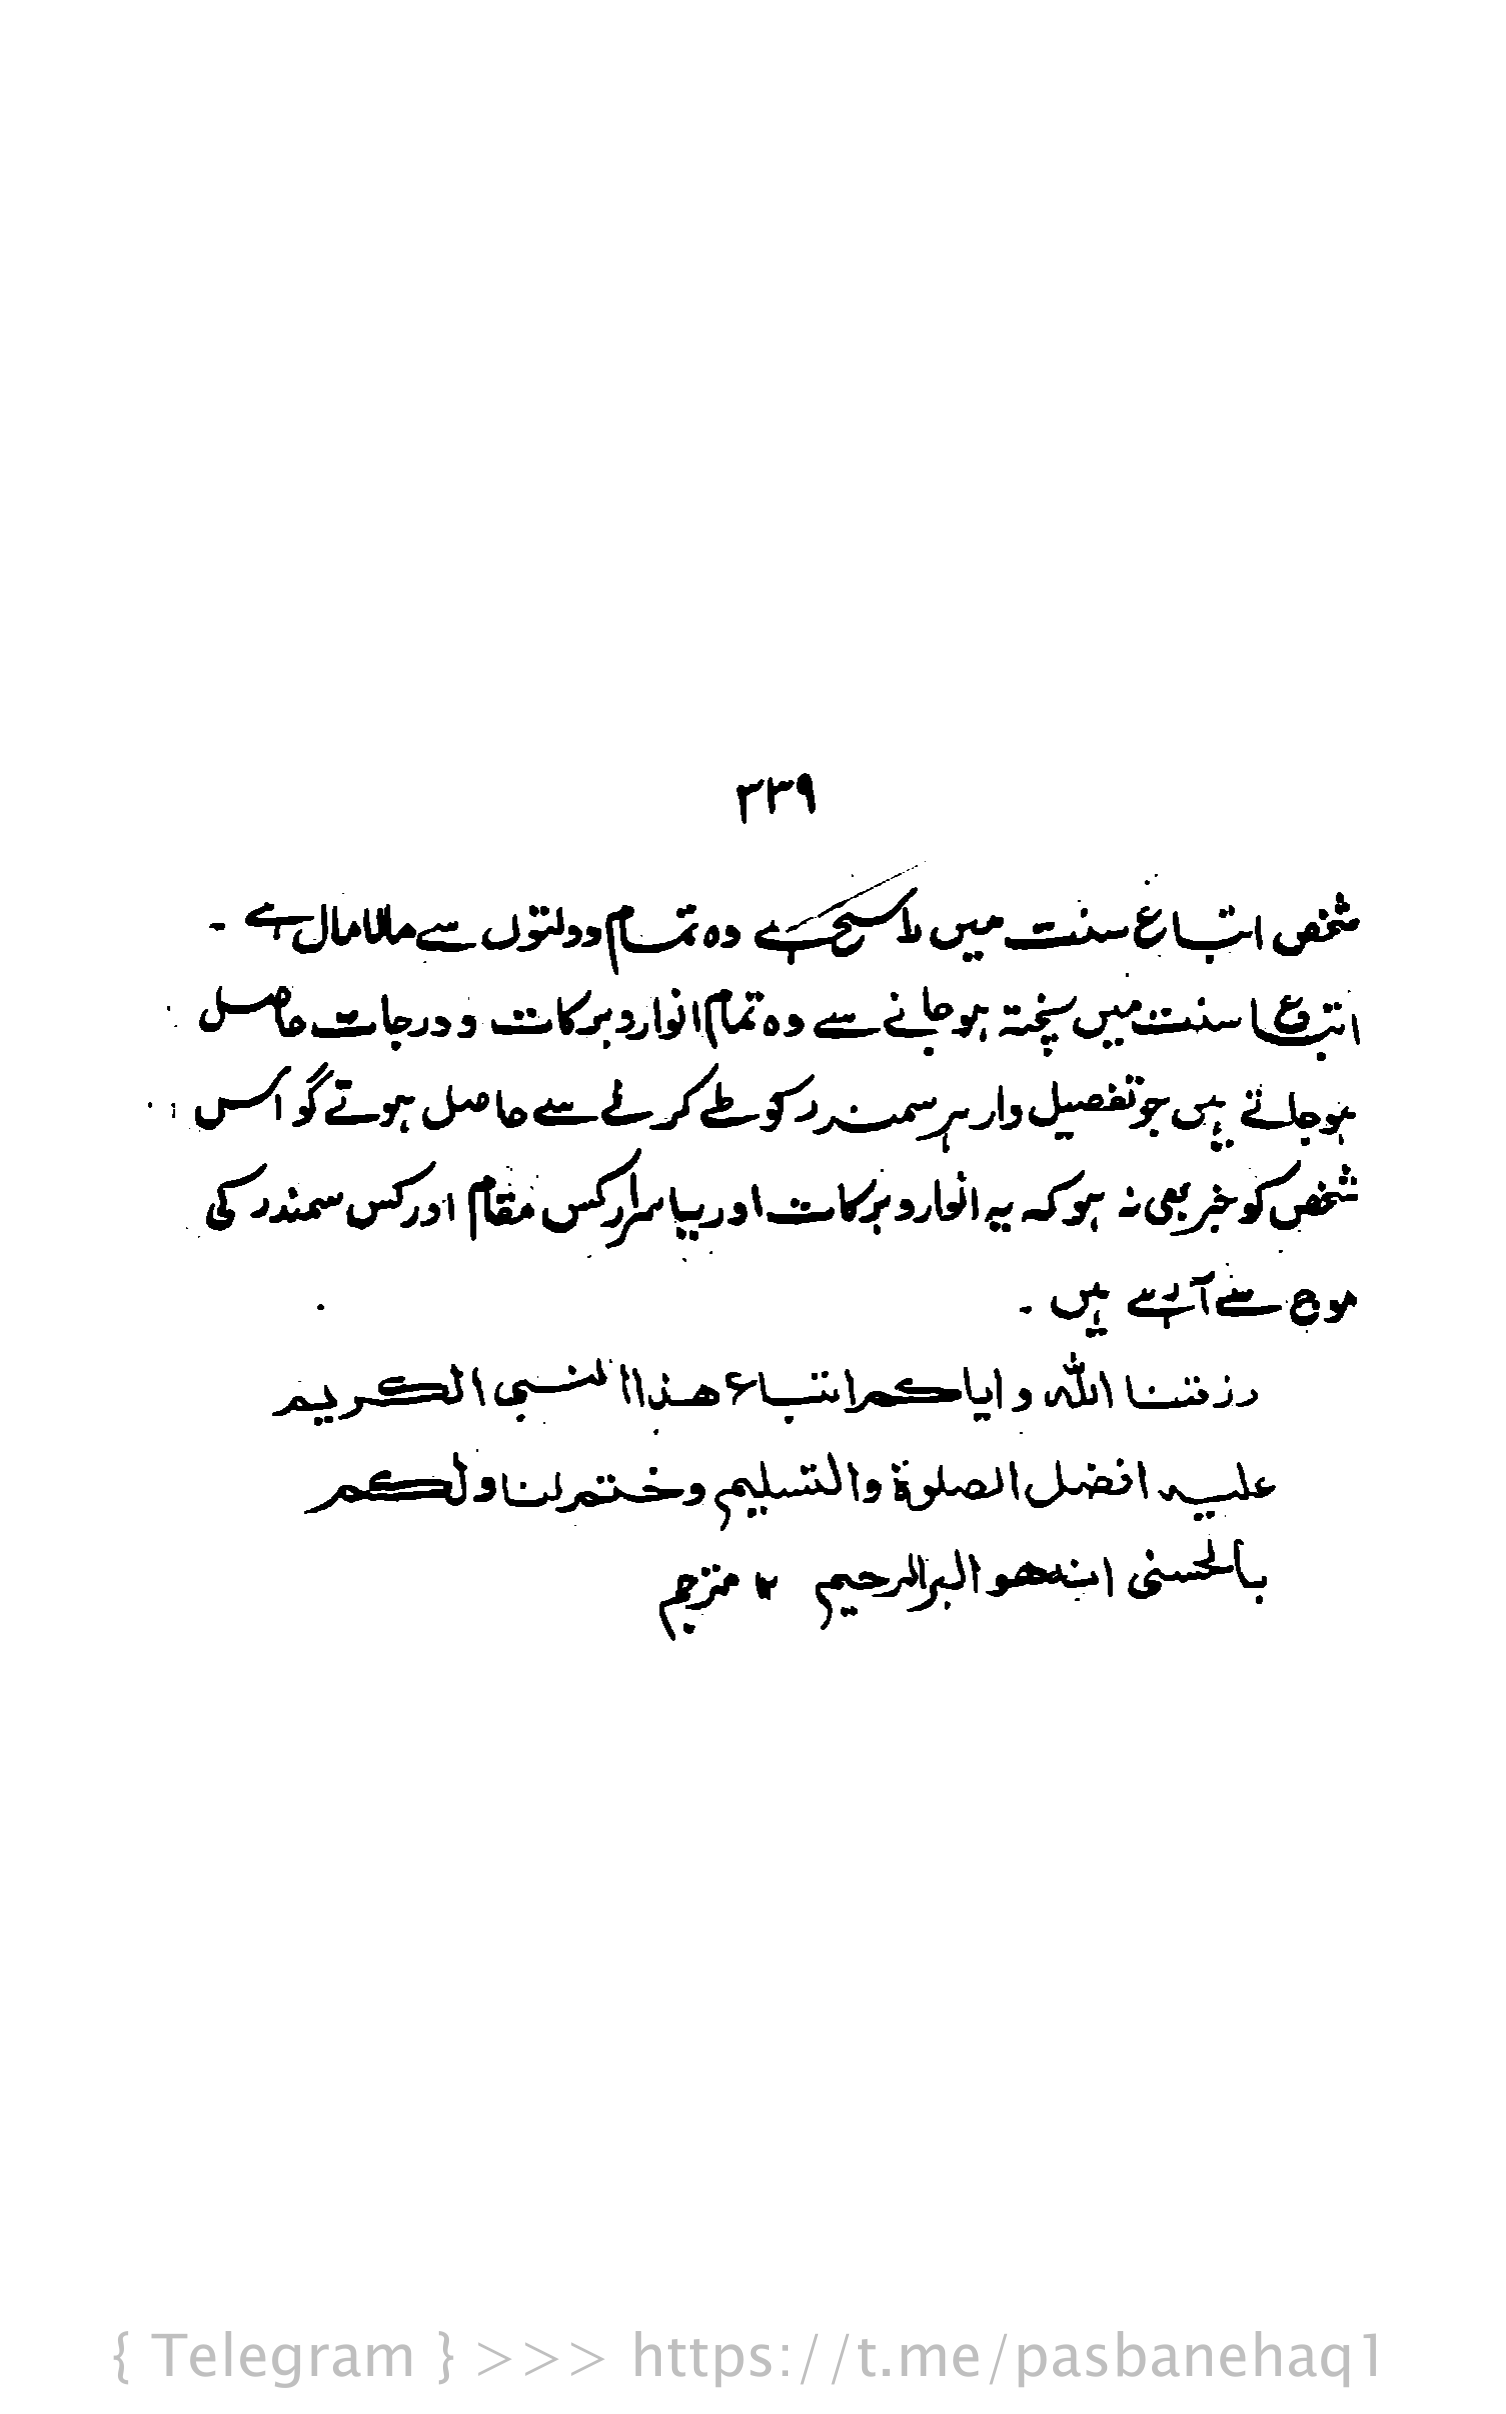 ۳۳۹
شخص اتباع سنت میں راسخ ہے وہ تمام دولتوں سے مالامال ہے ۔
اتباع سنت میں پختہ ہو جانے سے وہ تمام انوار و برکات و درجات حاصل
ہو جاتے ہیں جو تفصیل وار ہر سمندر کو طے کرنے سے حاصل ہوتے گو اس
شخص کو خبر بھی نہ ہو کہ یہ انوار و برکات اور یہ اسرار کس مقام اور کس سمندر کی
موج سے آرہے ہیں ۔
رزقنا اللہ و ایاکم اتباع هذا النبی الکریم
علیہ افضل الصلوۃ والتسلیم وختم لنا ولکم
بالحسنی انہ ھو البر الرحیم ۱۲ مترجم
{ Telegram } >>> https://t.me/pasbanehaq1